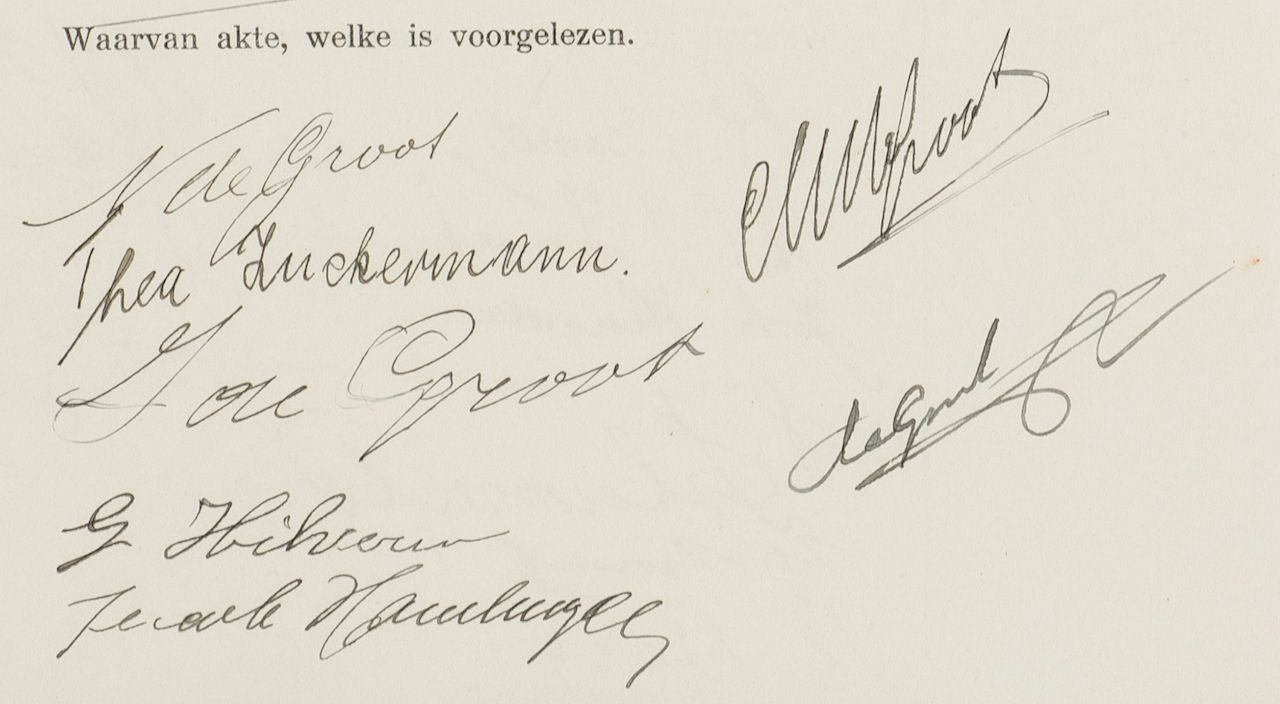 Waarvan akte, welke is voorgelezen.
N de Groot
Thea Zuckermann.
de Groot
G
Hamburger
Groot
de Groot